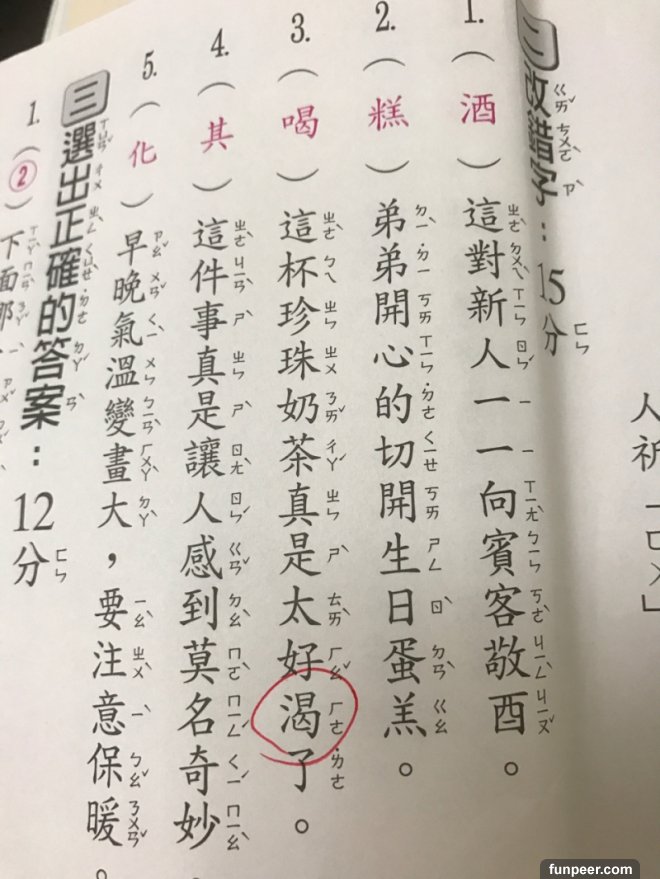 人祈
二改錯字：15分
1.（酒）這對新人一一向賓客敬酉。
2.（糕）弟弟開心的切開生日蛋羔。
3.（喝）這杯珍珠奶茶真是太好渴了。
4.（其）這件事真是讓人感到莫名奇妙。
5.（化）早晚氣溫變畫大，要注意保暖。
三選出正確的答案：12分
1.（②）下面
funpeer.com